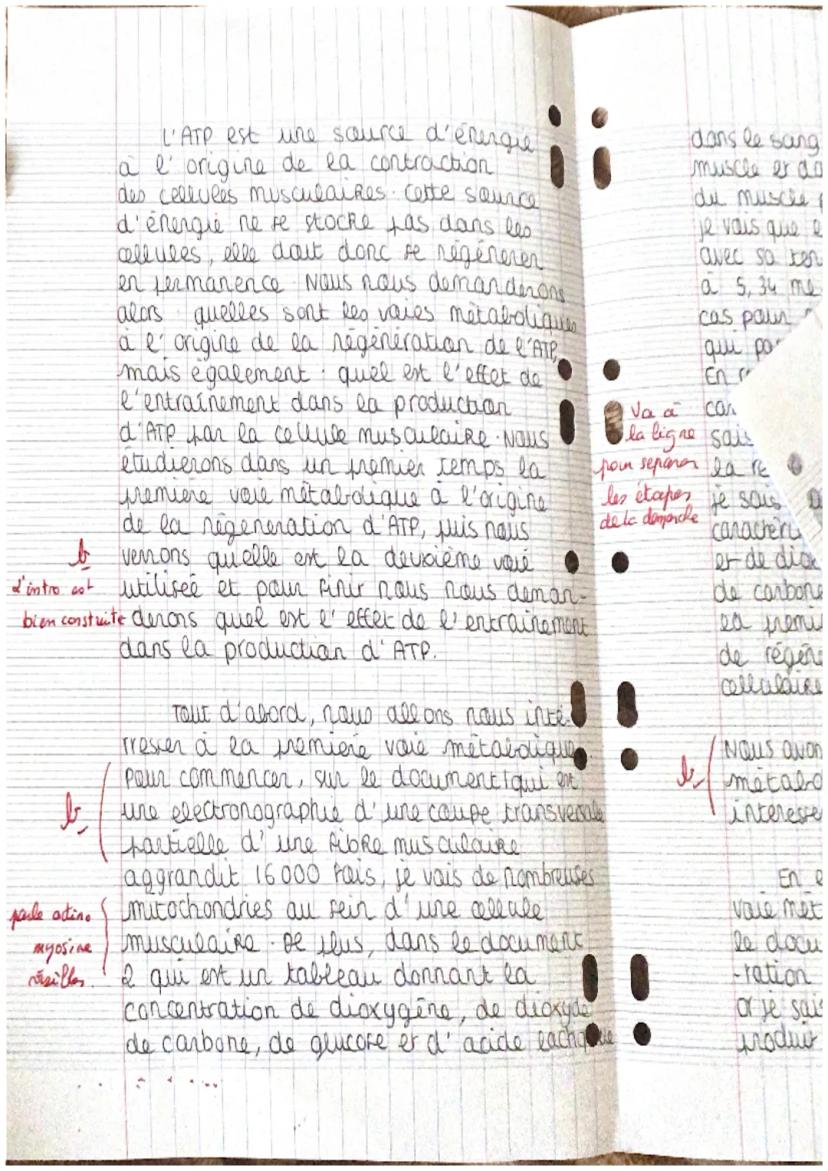 L'ATP est une source d'énergie
à l'origine de la contraction
des cellules musculaires. Cette source
d'énergie ne se stocke pas dans les
cellules, elle doit donc se régénérer
en permanence. Nous nous demanderons
alors : quelles sont les voies métaboliques
à l'origine de la régénération de l'ATP,
mais également : quel est l'effet de
l'entraînement dans la production
d'ATP par la cellule musculaire. Nous
étudierons dans un premier temps la
première voie métabolique à l'origine
de la régéneration d'ATP, puis nous
verrons quelle est la deuxième voie
utilisée et pour finir nous nous deman-
derons quel est l'effet de l'entrainement
dans la production d'ATP.
b
L'intro est
bien construite
Tout d'abord, nous allons nous inté-
rresser à la première voie métabolique.
Pour commencer, sur le document 1 qui est
une electronographie d'une coupe transversale
partielle d'une fibre musculaire
aggrandit 16 000 fois, je vois de nombreuses
mitochondries au sein d'une cellule
musculaire. De plus, dans le document
2 qui est un tableau donnant la
concentration de dioxygène, de dioxyde
de carbone, de glucose et d'acide lactique
b
parle actine
myosine
visibles
Va à
la ligne
pour séparer
les étapes
de la demarche
dans le sang
muscle et do
du muscle
je vois que
avec sa ten
à 5,34 me
cas pour
qui pa
En r
car
sais
la re
je sais
caractéri
et de diox
de carbone
la premi
de régéné
cellulaire
b
Nous avon
métabo
interesse
En e
voie mét
le docu
-ration
or je sais
produit